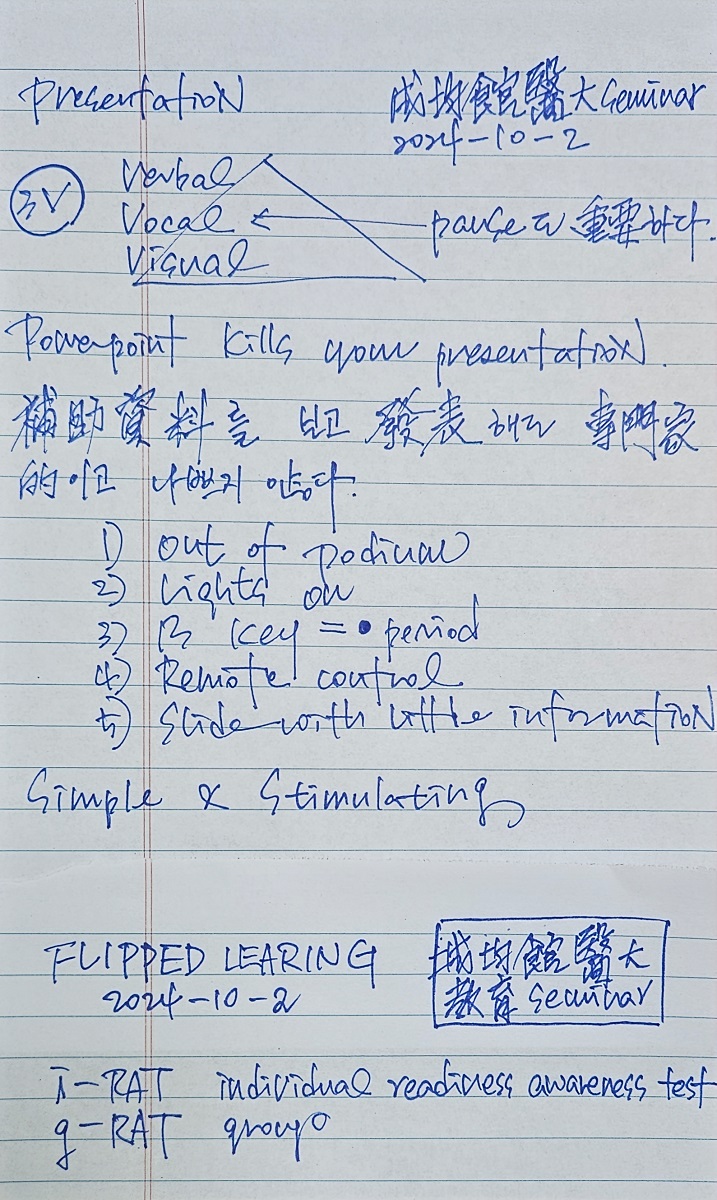 Presentation
成均館醫大 Seminar
2024-10-2
3V
Verbal
Vocal
Visual
pause도 重要하다.
Powerpoint kills your presentation.
補助資料를 보고 發表해도 專門家
的이고 나쁘지 않다.
1) out of podium
2) Lights on
3) B key = • period
4) Remote control
5) Slide with little information
Simple & Stimulating
FLIPPED LEARING
2024-10-2
成均館醫大
敎育 Seminar
i-RAT individual readiness awareness test
g-RAT group